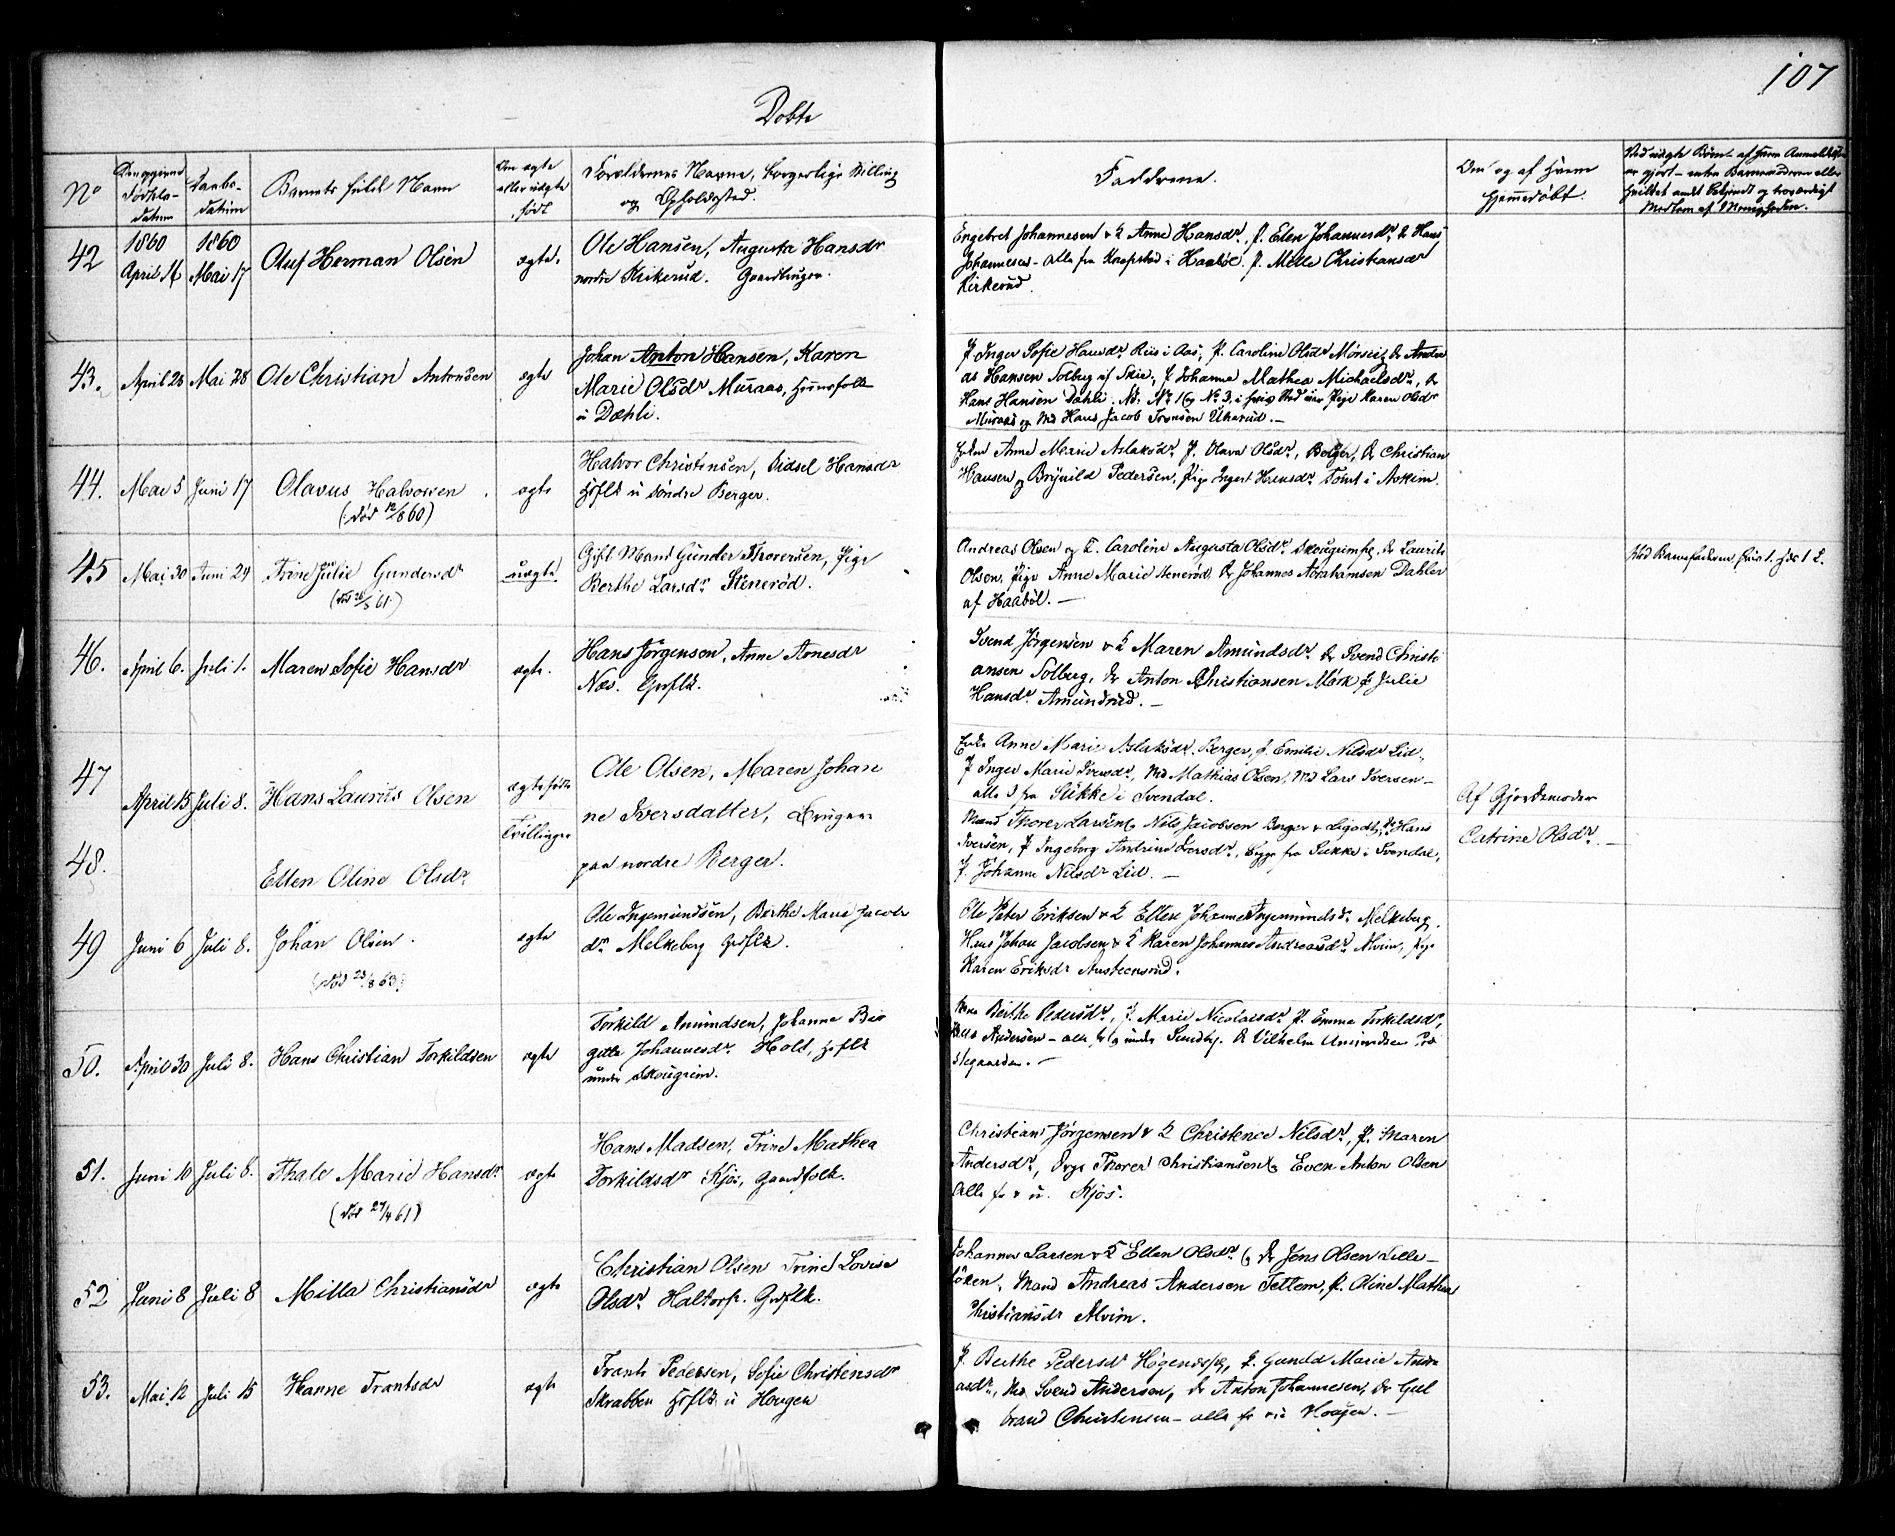 107
Døbte
No
Den opgivne
Fødsels-
datum
Daabs-
datum
Barnets fulde Navn
Om ægte
eller uægte
født
Forældrenes Navne, borgerlige Stilling
og Opholdssted.
Faddrene.
Om og af hvem
hjemmedøbt.
Ved uægte Børn - af hvem Anmeldelse
er gjort - enten Barnefaderen eller
hvilket andet bekjendt og troværdigt
Medlem af Menigheden.
42
1860
April 16
1860
Mai 17
Oluf Herman Olsen
ægte.
Ole Hansen, Augusta Hansdr
nordre Kirkerud. Gaardbruger.
Engebret Johannesen & K Anne Hansdr, P. Elen Johannesdr, & Hans
Johannesen - alle fra Kaapstad i Haabøl. P. Mille Christiansdr
Kirkerud.
43.
April 23
Mai 28
Ole Christian Antonsen
ægte
Johan Anton Hansen, Karen
Marie Olsdr Muraas, Huusfolk
u Dæhli.
P Inger Sofie Hansdr Riis i Aas, P. Caroline Olsdr Mørseig, Dr Andre
as Hansen Solberg af Skie, P Johanne Mathea Michaelsdr, Dr
Hans Hansen Dæhli. No 1 og No 3, i hvis Sted var Pige Karen Olsdr
Muraas og Md Hans Jacob Svensen Ukerud. -
44.
Mai 5
Juni 17
Olavus Halvorsen
(død 12/8 60)
ægte
Halvor Christensen, Sidsel Hansdr
Hsflk u søndre Berger.
Enken Anne Marie Aslaksdr, P. Olava Olsdr, Berger, Dr Christian
Hansen og Brynild Pedersen, Pige Ingert Hensdr Tomt i Askim.
45
Mai 30
Juni 24
Trine Julie Gundersdr
(død 26/3 61)
uægte
Gift Mand Gunder Thoresen, Pige
Berthe Larsdr Stenerød.
Andreas Olsen og K. Caroline Augusta Olsdr Skougrimeje, Dr Laurits
Olsen, Pige Anne Marie Stenerød, Dr Johannes Abrahamsen Dahler
af Haabøl. -
Ved Barnefaderen, hvis 1. hds 1 L.
46.
April 6.
Juli 1.
Maren Sofie Hansdr
ægte.
Hans Jørgenson, Anne Arnesdr
Næs. Grflk.
Svend Jørgensen & K Maren Amundsdr, Dr Svend Christi
ansen Solberg, Dr Anton Christiansen Mørk, P Julie
Hansdr Amundrud. -
47
April 15
Juli 8.
Hans Laurits Olsen
ægtefødte
Tvillinger
Ole Olsen, Maren Johan
ne Iversdatter, Bruger
paa nordre Berger.
Enke Anne Marie Aslaksdr Berger, P. Emilie Nilsdr Lid,
P Inger Marie Iversdr, Md Mathias Olsen, Md Lars Iversen -
alle 3 fra Sukke i Svendal.
Af Gjordemoder
Catrine Olsdr. -
48.
Ellen Oline Olsdr
Mand Thorer Larsen og Nils Jacobsen Berger & Ligodt, Dr Hans
Iversen, P Ingeborg Andrine Iversdr, begge fra Sukke i Svendal,
P. Johanne Nilsdr Lid. -
49
Juni 6
Juli 8.
Johan Olsen.
(død 23/8 63)
ægte
Ole Ingemundsen, Berthe Marie Jacobs
dr Melkeberg Grflk.
Ole Peter Eriksen & K Ellen Johanne Ingemundsdr Melkeberg.
Hans Johan Jacobsen & K Karen Johannes Andreasdr Alvim, Pige
Karen Eriksdr Austeensrud.
50.
April 30
Juli 8.
Hans Christian Torkildsen
ægte
Torkild Amundsen, Johanne Bir
gitte Johannesdr Holt, Hsflk
under Skougrim.
Kone Berthe Pedersdr, P. Marie Nicolaisdr P. Emma Torkildsdr,
Andersen - alle fra og under Sundby. Dr Vilhelm Amundsen Præ
stegaarden. -
51.
Juni 10
Juli 8.
Thale Marie Hansdr
(død 27/4 61)
ægte
Hans Madsen, Trine Mathea
Torkildsdr Kjos, Gaardfolk.
Christian Jørgensen & K Christence Nilsdr, P. Maren
Andersdr, Unge Thorer Christiansen og Even Anton Olsen
Alle fr & u. Kjos.
52
Juni 8
Juli 8
Milla Christiansdr
ægte
Christian Olsen Trine Lovise
Olsdr Haltorp. Grflk.
Johannes Larsen & K Ellen Olsdr og Dr Jens Olsen Lille-
løken, Mand Andreas Andersen Tettem, P. Oline Mathea
Christiansdr Alvim.
53.
Mai 12
Juli 15
Hanne Frantsdr
ægte
Frants Pedersen, Sofie Christensdr
Skrabben Hsflk u Hougen
P. Berthe Pedersdr Høgendspe, P. Gunild Marie Andre
asdr, Md. Svend Andersen, Dr Anton Johannesen, Dr Gul
brand Christensen - alle fr under Hougen. -